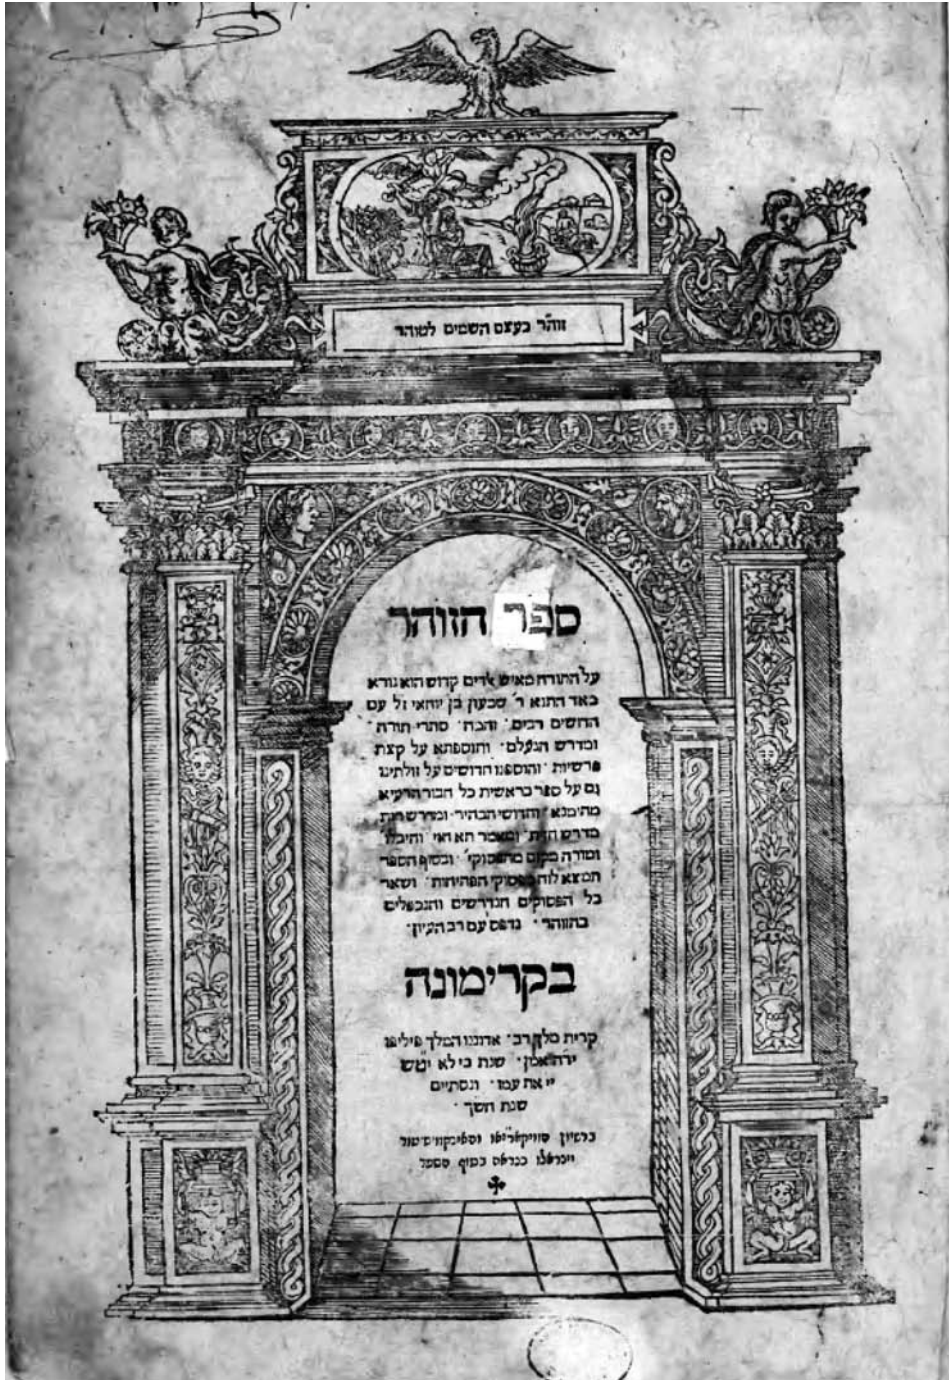 זוהר כעצם השמים לטוהר
ספר הזוהר
על התורה מאיש אדים קדוש הוא נורא
מאד התנא ר' שמעון בן יוחאי ז"ל עם
חדושים רבים והמה סתרי תורה
ומדרש הנעלם ותוספתא על קצת
פרשיות והוספנו חדושים על זולתינו
גם על ספר בראשית כל חבור הרעיא
מהימנא וחדושי הבהיר ומדרש רות
מדרש חזית ומאמר תא חזי והיכלו'
ומורה מקום מהפסוקי' ובסוף הספר
תמצא לוח מפסוקי הפתיחות ושאר
כל הפסוקים הנדרשים והנכפלים
בהזוהר נדפס עם רב העיון
בקרימונה
קרית מלך רב אדוננו המלך פיליפו
יר"ה אמן שנת כי לא יטש
יי את עמו ונסתיים
שנת השך
ברשיון
כנראה בסוף הספר